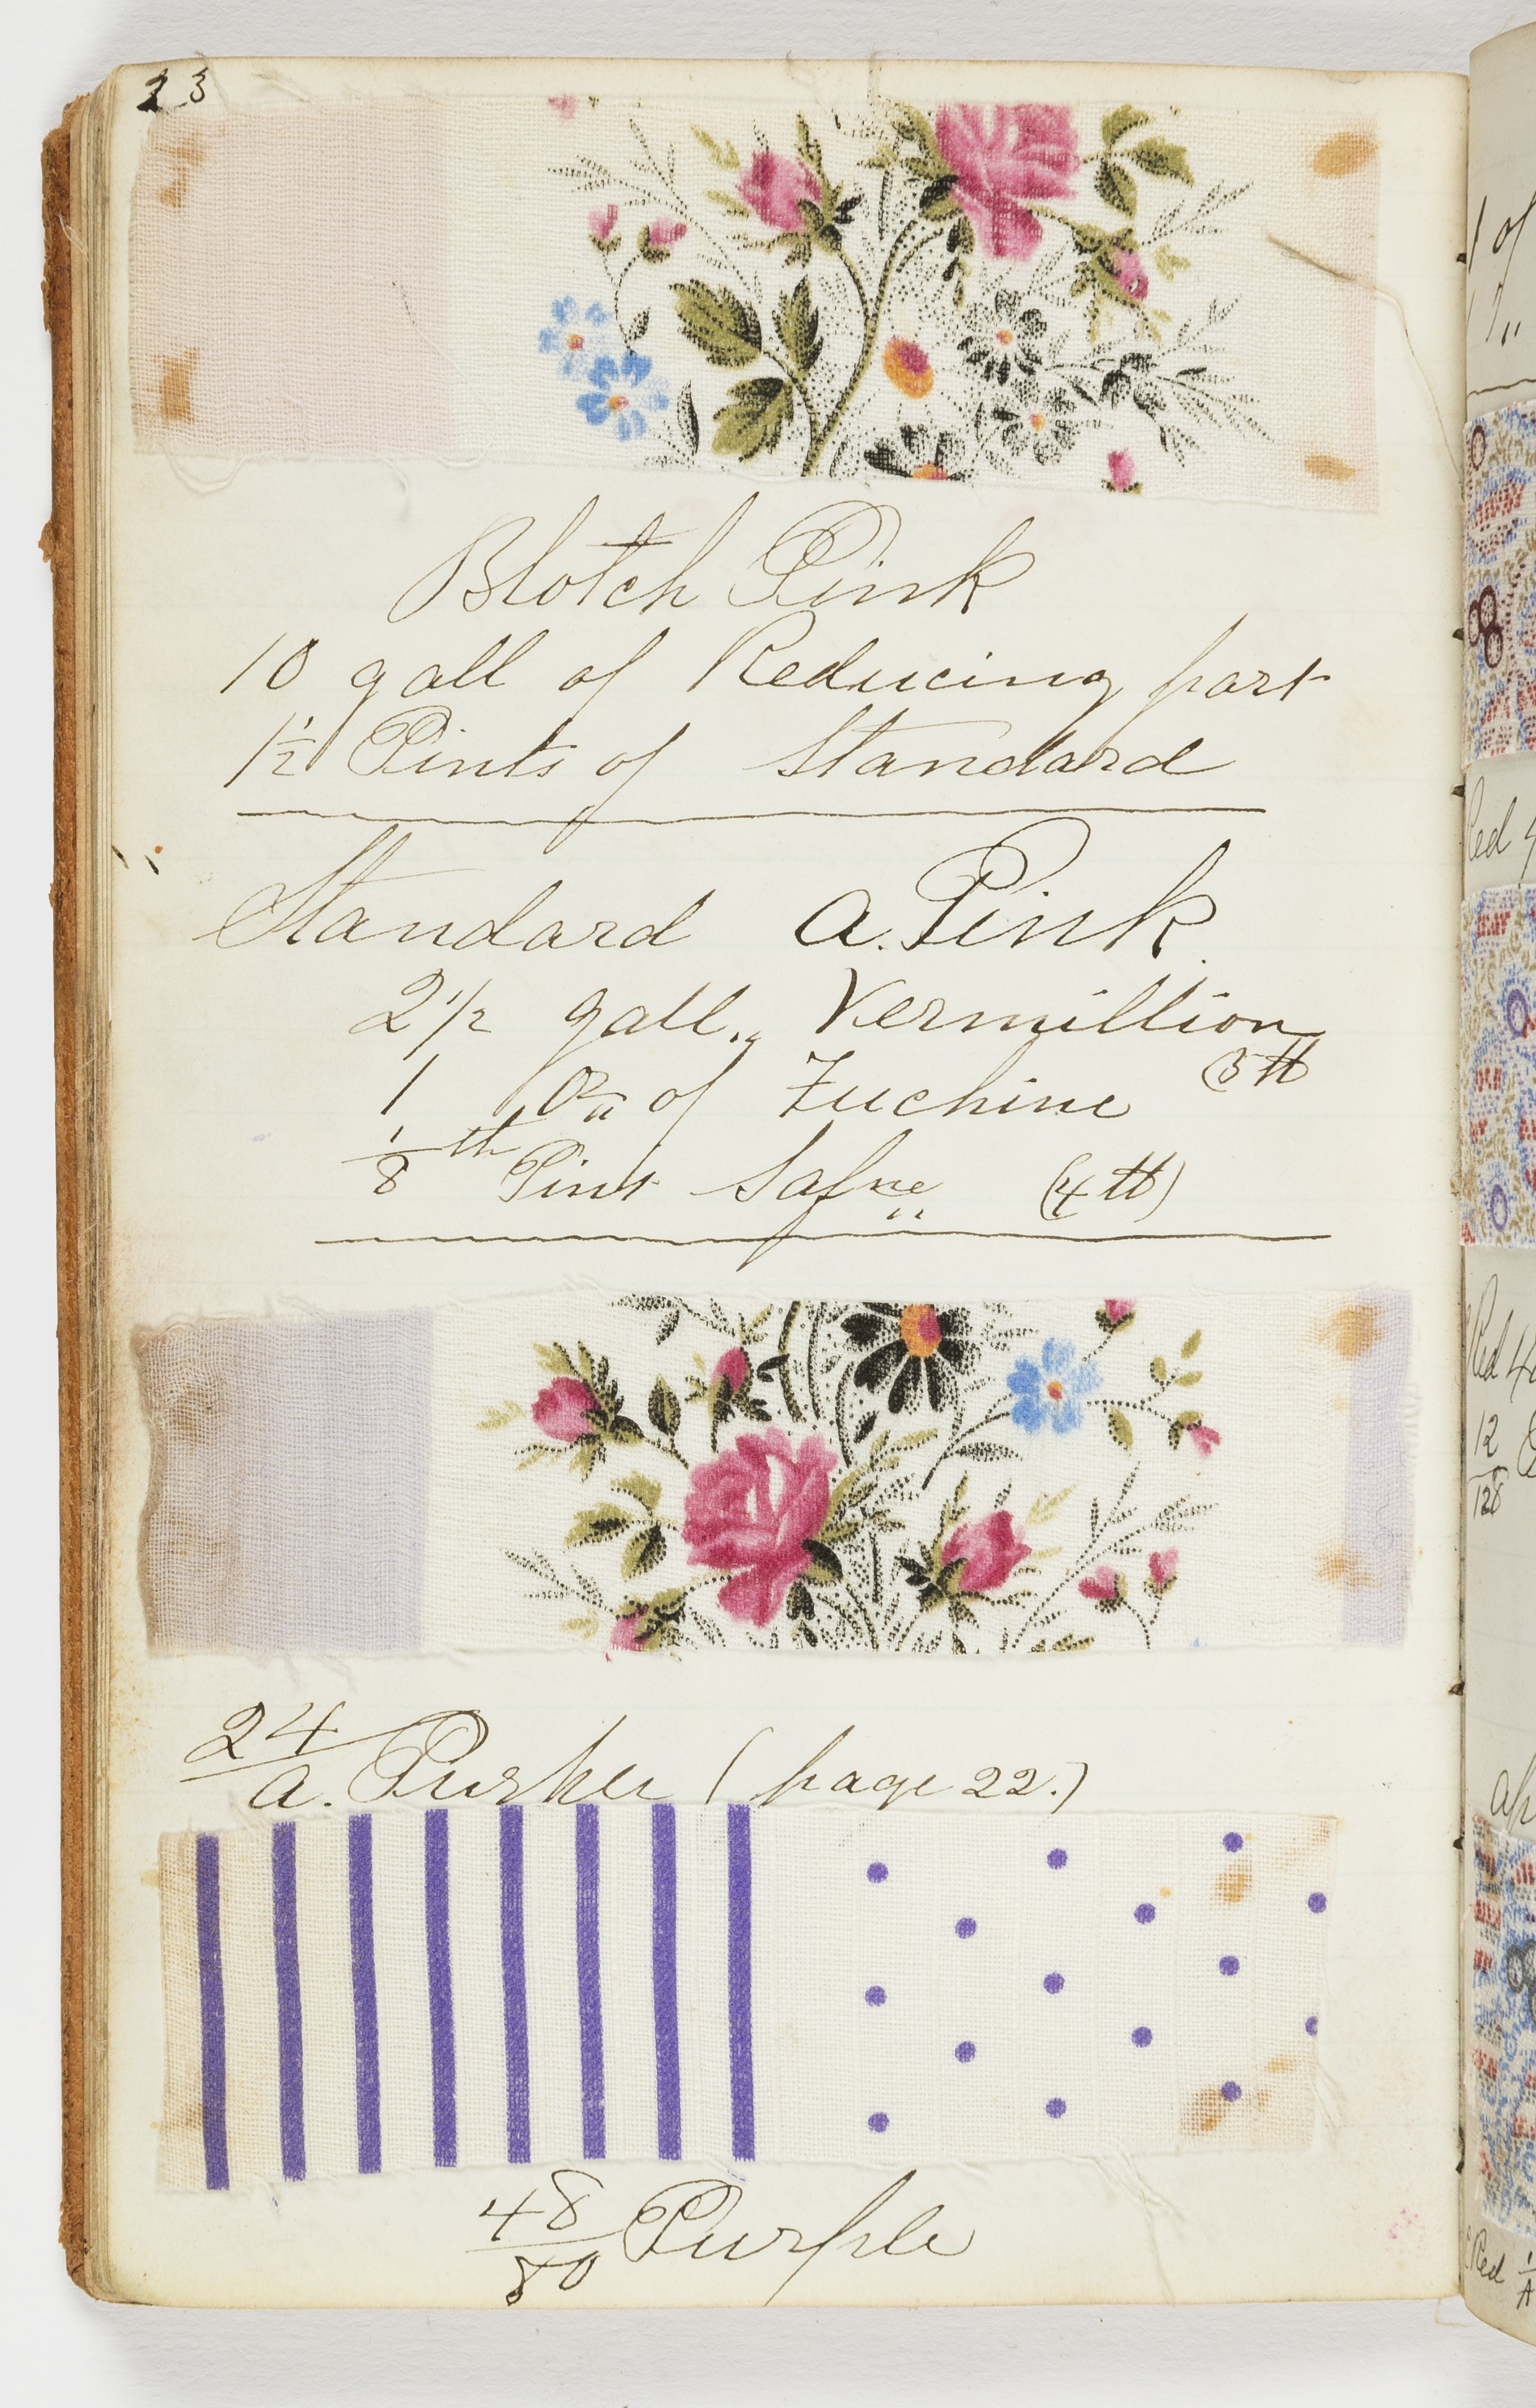 23
Blotch Pink
10 gall of Reducing part
1½ Pints of Standard
Standard a. Pink
2 1/2 gall. Vermillion
1 oz of Fuchine (3 ℔
⅛th Pint Safne (4 ℔)
24/a. Purple (page 22.)
48/80 Purple
1 of
Red
Red 4
12/128
Red